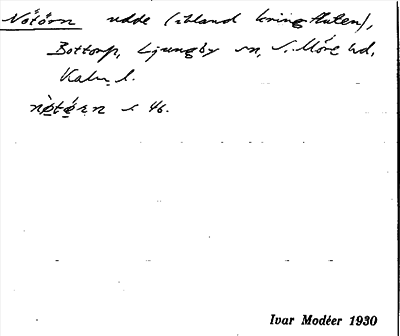 Nötörn udde (ibland kring Huten),
Bottorp, Ljungby sn, S. Möre hd,
Kalm. l.
nø̀tǿrn s. 46.
Ivar Modéer 1930